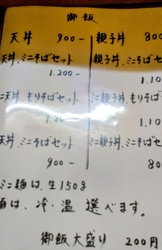 御飯
天丼 900-
天丼、ミニそばセット
1.200-
ミニ天丼、もりそばセット
ミニ天丼、ミニそばセット
900-
親子丼 800
親子丼、ミニそば
1.10
ミニ親子丼、もりそば
1.10
ミニ親子丼、ミニそば
80
ミニ麺は、生150g
麺は、冷・温 選べます。
御飯大盛り 200円